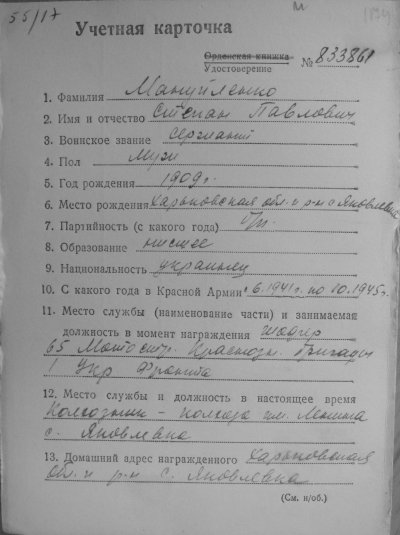 55/17
Учетная карточка
Орденская книжка
Удостоверение № 833861
1. Фамилия Мануйленко
2. Имя и отчество Степан Павлович
3. Воинское звание Сержант
4. Пол Муж
5. Год рождения 1909 г.
6. Место рождения Харьковская обл. и р-н с Яковлевка
7. Партийность (с какого года) б/п.
8. Образование низшее
9. Национальность украинец
10. С какого года в Красной Армии с 6.1941 г. по 10.1945 г.
11. Место службы (наименование части) и занимаемая
должность в момент награждения шофер
65 Мотостр. Краснозн. Бригады
1 Укр Фронта
12. Место службы и должность в настоящее время
Колхозник – колхоза им. Ленина
с. Яковлевка
13. Домашний адрес награжденного Харьковская
обл. и р-н с. Яковлевка
(См. н/об.)